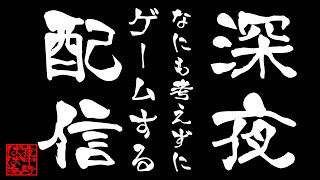 深夜
なにも考えずに
ゲームする
配信